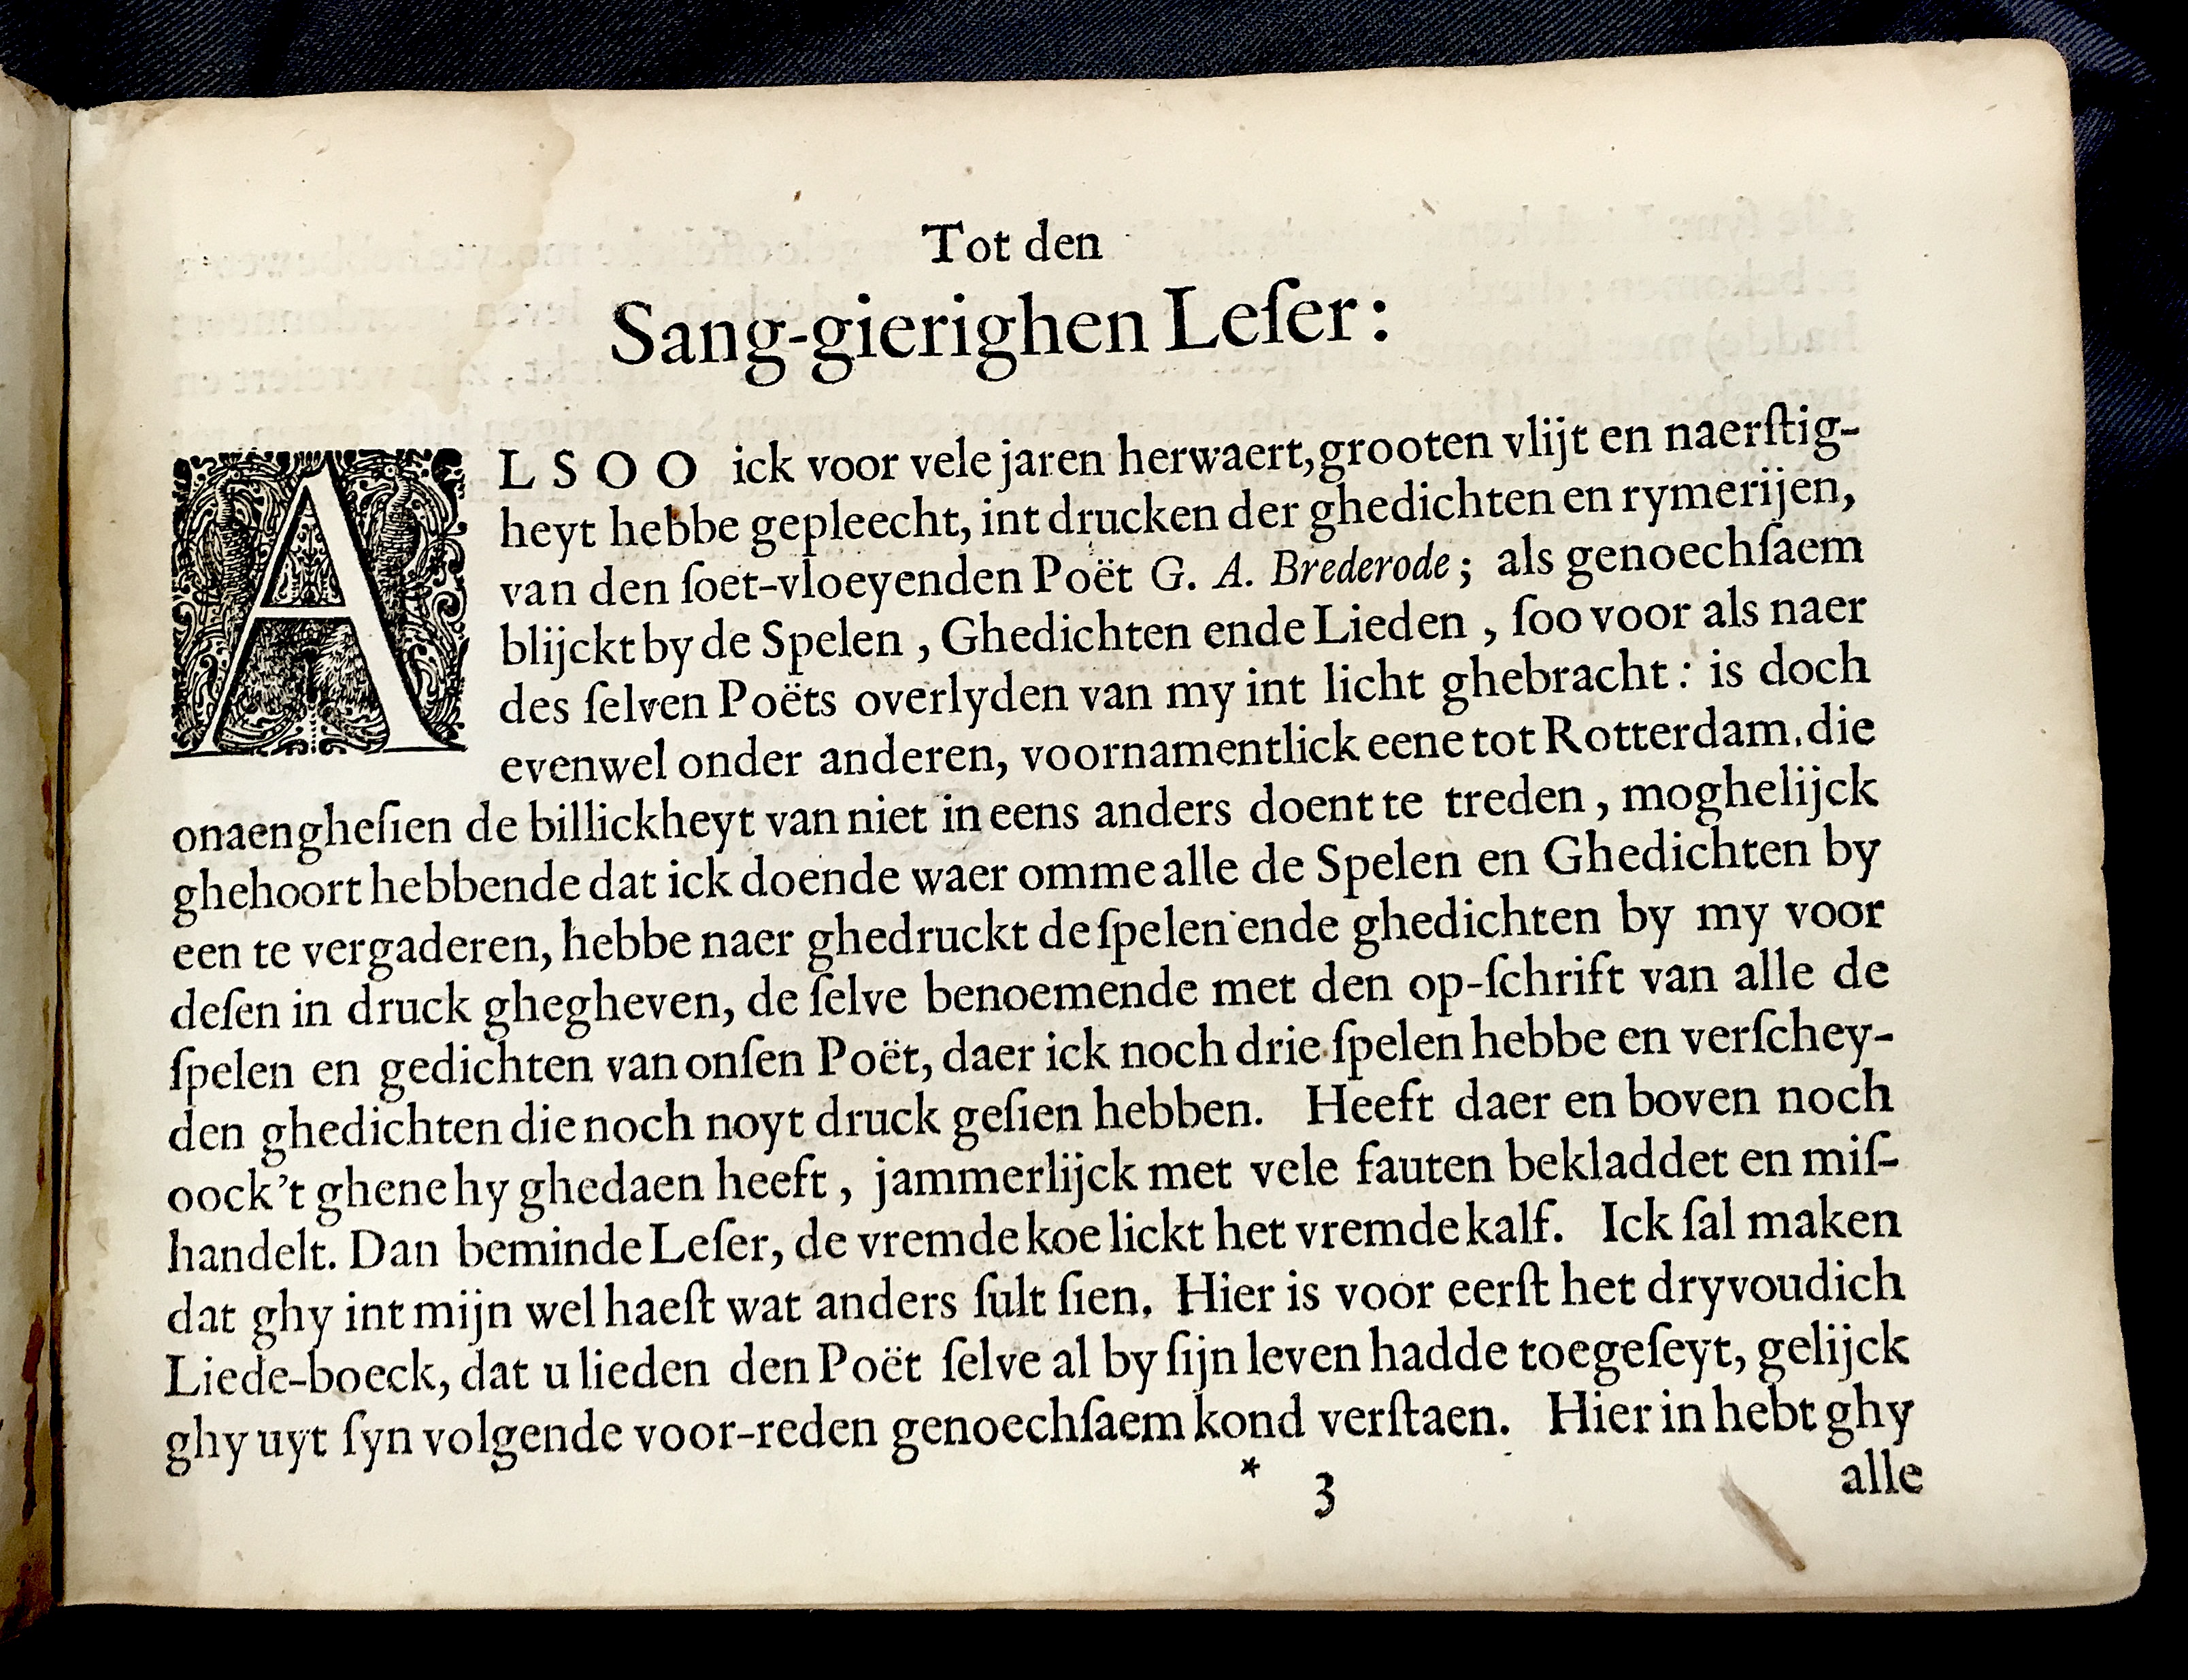 Tot den
Sang-gierighen Leſer:
ALSOO ick voor vele jaren herwaert, grooten vlijt en naerſtig-
heyt hebbe gepleecht, int drucken der ghedichten en rymerijen,
van den ſoet-vloeyenden Poët G. A. Brederode; als genoechſaem
blijckt by de Spelen, Ghedichten ende Lieden, ſoo voor als naer
des ſelven Poëts overlyden van my int licht ghebracht: is doch
evenwel onder anderen, voornamentlick eene tot Rotterdam, die
onaengheſien de billickheyt van niet in eens anders doent te treden, moghelijck
ghehoort hebbende dat ick doende waer omme alle de Spelen en Ghedichten by
een te vergaderen, hebbe naer ghedruckt de ſpelen ende ghedichten by my voor
deſen in druck ghegheven, de ſelve benoemende met den op-ſchrift van alle de
ſpelen en gedichten van onſen Poët, daer ick noch drie ſpelen hebbe en verſchey-
den ghedichten die noch noyt druck geſien hebben. Heeft daer en boven noch
oock't ghene hy ghedaen heeft, jammerlijck met vele fauten bekladdet en miſ-
handelt. Dan beminde Leſer, de vremde koe lickt het vremde kalf. Ick ſal maken
dat ghy int mijn wel haeſt wat anders ſult ſien. Hier is voor eerſt het dryvoudich
Liede-boeck, dat u lieden den Poët ſelve al by ſijn leven hadde toegeſeyt, gelijck
ghy uyt ſyn volgende voor-reden genoechſaem kond verſtaen. Hier in hebt ghy
* 3 alle